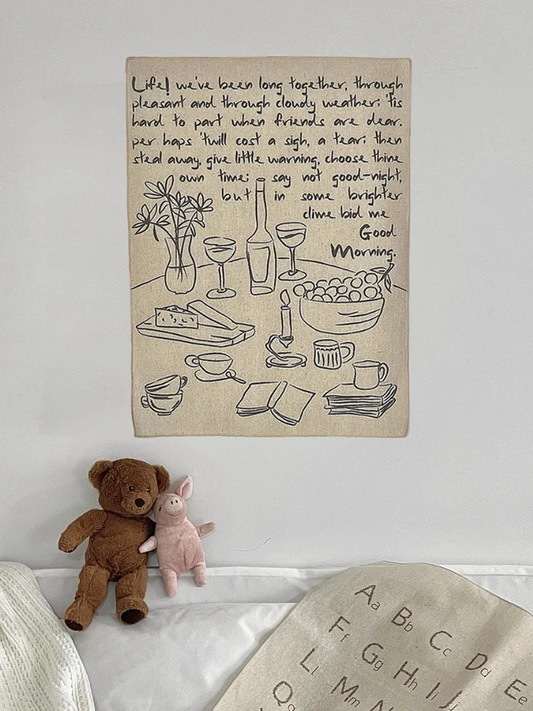 Life! we've been long together, through
pleasant and through cloudy weather; 'tis
hard to part when friends are dear.
per haps 'twill cost a sigh, a tear; then
steal away, give little warning, choose thine
own time; say not good-night,
but in some brighter
clime bid me
Good
Morning.
Aa Bb Cc Dd Ee
Ff Gg Hh Ii
Ll Mm
Qq